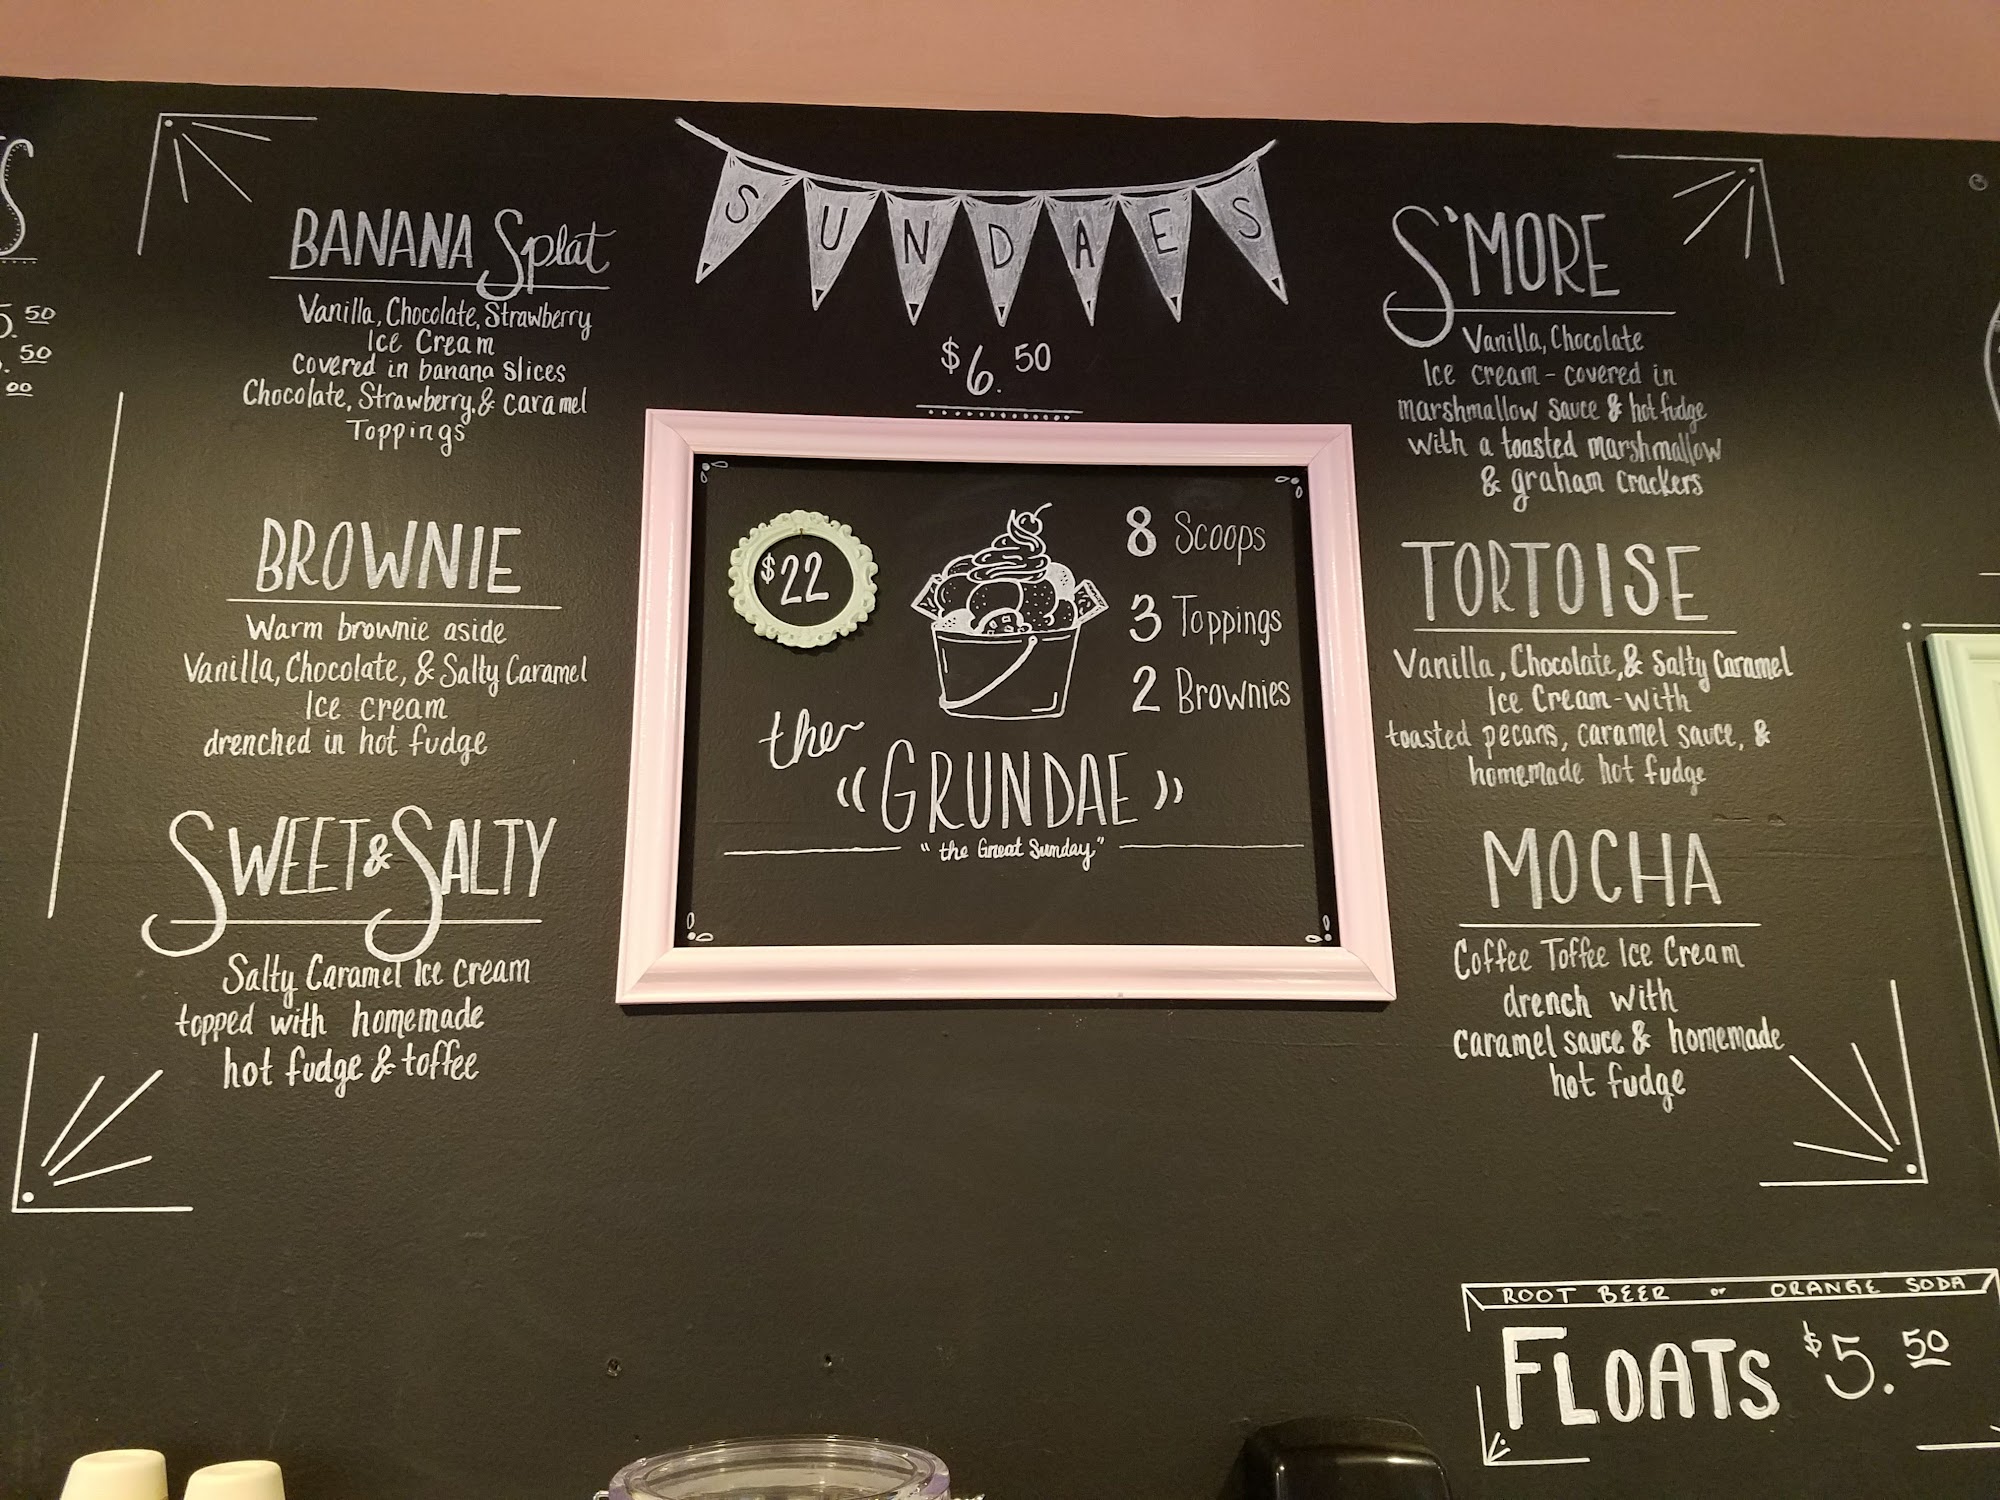 S
5.50
.50
.00
BANANA Splat
Vanilla, Chocolate, Strawberry
Ice Cream
covered in banana slices
Chocolate, Strawberry, & caramel
Toppings
BROWNIE
Warm brownie aside
Vanilla, Chocolate, & Salty Caramel
Ice cream
drenched in hot fudge
SWEET & SALTY
Salty Caramel Ice cream
topped with homemade
hot fudge & toffee
SUNDAES
$6.50
$22
8 Scoops
3 Toppings
2 Brownies
the
"GRUNDAE"
"the Great Sunday"
S'MORE
Vanilla, Chocolate
Ice cream - covered in
marshmallow sauce & hot fudge
with a toasted marshmallow
& graham crackers
TORTOISE
Vanilla, Chocolate, & Salty Caramel
Ice Cream - with
toasted pecans, caramel sauce, &
homemade hot fudge
MOCHA
Coffee Toffee Ice Cream
drench with
caramel sauce & homemade
hot fudge
ROOT BEER or ORANGE SODA
FLOATS $5.50